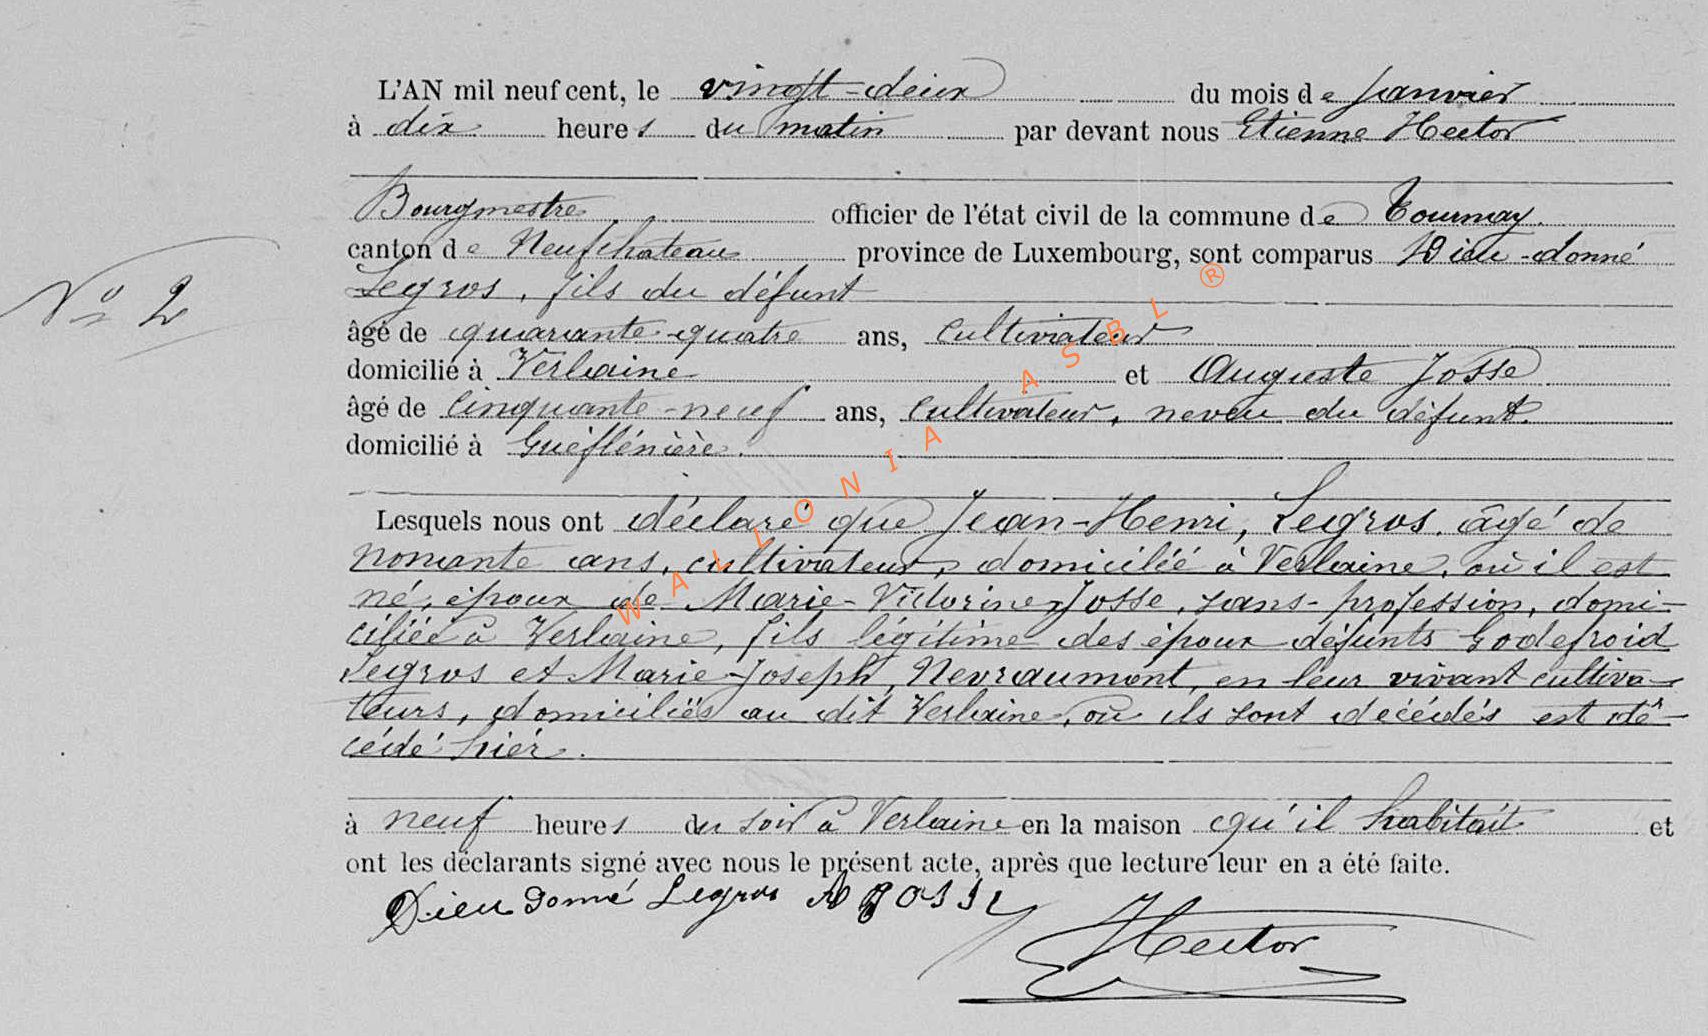 L'AN mil neuf cent, le vingt-deux du mois de Janvier
à dix heures du matin par devant nous Etienne Hector
Bourgmestre officier de l'état civil de la commune de Tournay.
canton de Neufchateau province de Luxembourg, sont comparus Dieu-donné
Legros, fils du défunt
N° 2
âgé de quarante-quatre ans, cultivateur
domicilié à Verlaine et Auguste Josse
âgé de cinquante-neuf ans, cultivateur, neveu du défunt.
domicilié à
Lesquels nous ont déclaré que Jean-Henri, Legros, âgé de
nonante ans, cultivateur, domicilié à Verlaine, où il est
né, époux de Marie-Victorine Josse, sans-profession, domi-
ciliée à Verlaine, fils légitime des époux défunts Godefroid
Legros et Marie-Joseph, Nevraumont, en leur vivant cultiva-
teurs, domiciliés au dit Verlaine, où ils sont décédés est dé-
cédé hier.
à neuf heures du soir à Verlaine en la maison qu'il habitait et
ont les déclarants signé avec nous le présent acte, après que lecture leur en a été faite.
Dieu donné Legros A Josse
Hector
WALLONIA ASBL ®